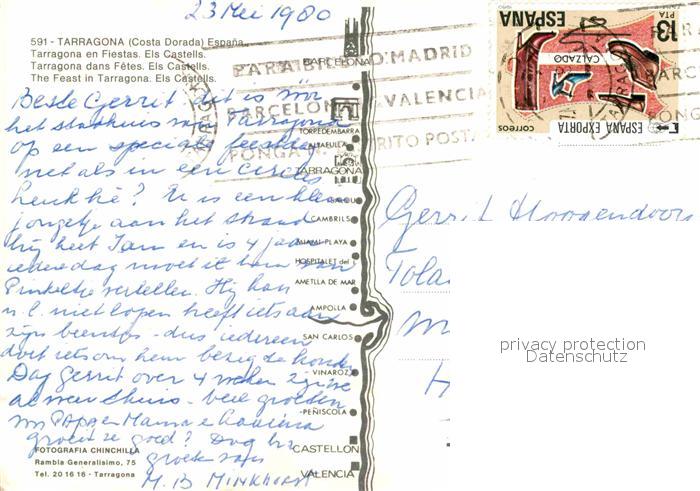 23 Mei 1980
591 - TARRAGONA (Costa Dorada) España
Tarragona en Fiestas. Els Castells.
Tarragona dans Fêtes. Els Castells.
The Feast in Tarragona. Els Castells.
Beste Gerrit dit is voor
het stadhuis van Tarragona
op een speciale feestdag
net als in een circus
leuk hè? Er is een klein
jongetje aan het strand
hij heet Tam en is 4 jaar
iedere dag moet ik hem van
Pinkeltje vertellen. Hij kan
n.l. niet lopen heeft iets aan
zijn beentjes - dus iedereen
doet iets om hem bezig te houden
Dag Gerrit over 4 weken zijn we
al weer thuis - vele groeten
Pappa en Mama
groeit ze goed? Dag hr
groeten van
M. B Minkhorst
FOTOGRAFIA CHINCHILLA
Rambla Generalisimo, 75
Tel. 20 16 16 - Tarragona
BARCELONA
TORREDEMBARRA
ALTAFULLA
TARRAGONA
SALOU
CAMBRILS
MIAMI-PLAYA
HOSPITALET del I.
AMETLLA DE MAR
AMPOLLA
SAN CARLOS
VINAROZ
PEÑISCOLA
CASTELLON
VALENCIA
PARA MADRID
BARCELONA VALENCIA
PONGA RITO POSTA
13 PTA
ESPAÑA
CALZADO
ESPAÑA EXPORTA
correos
BARCEL
PONGA
Gerrit
privacy protection
Datenschutz